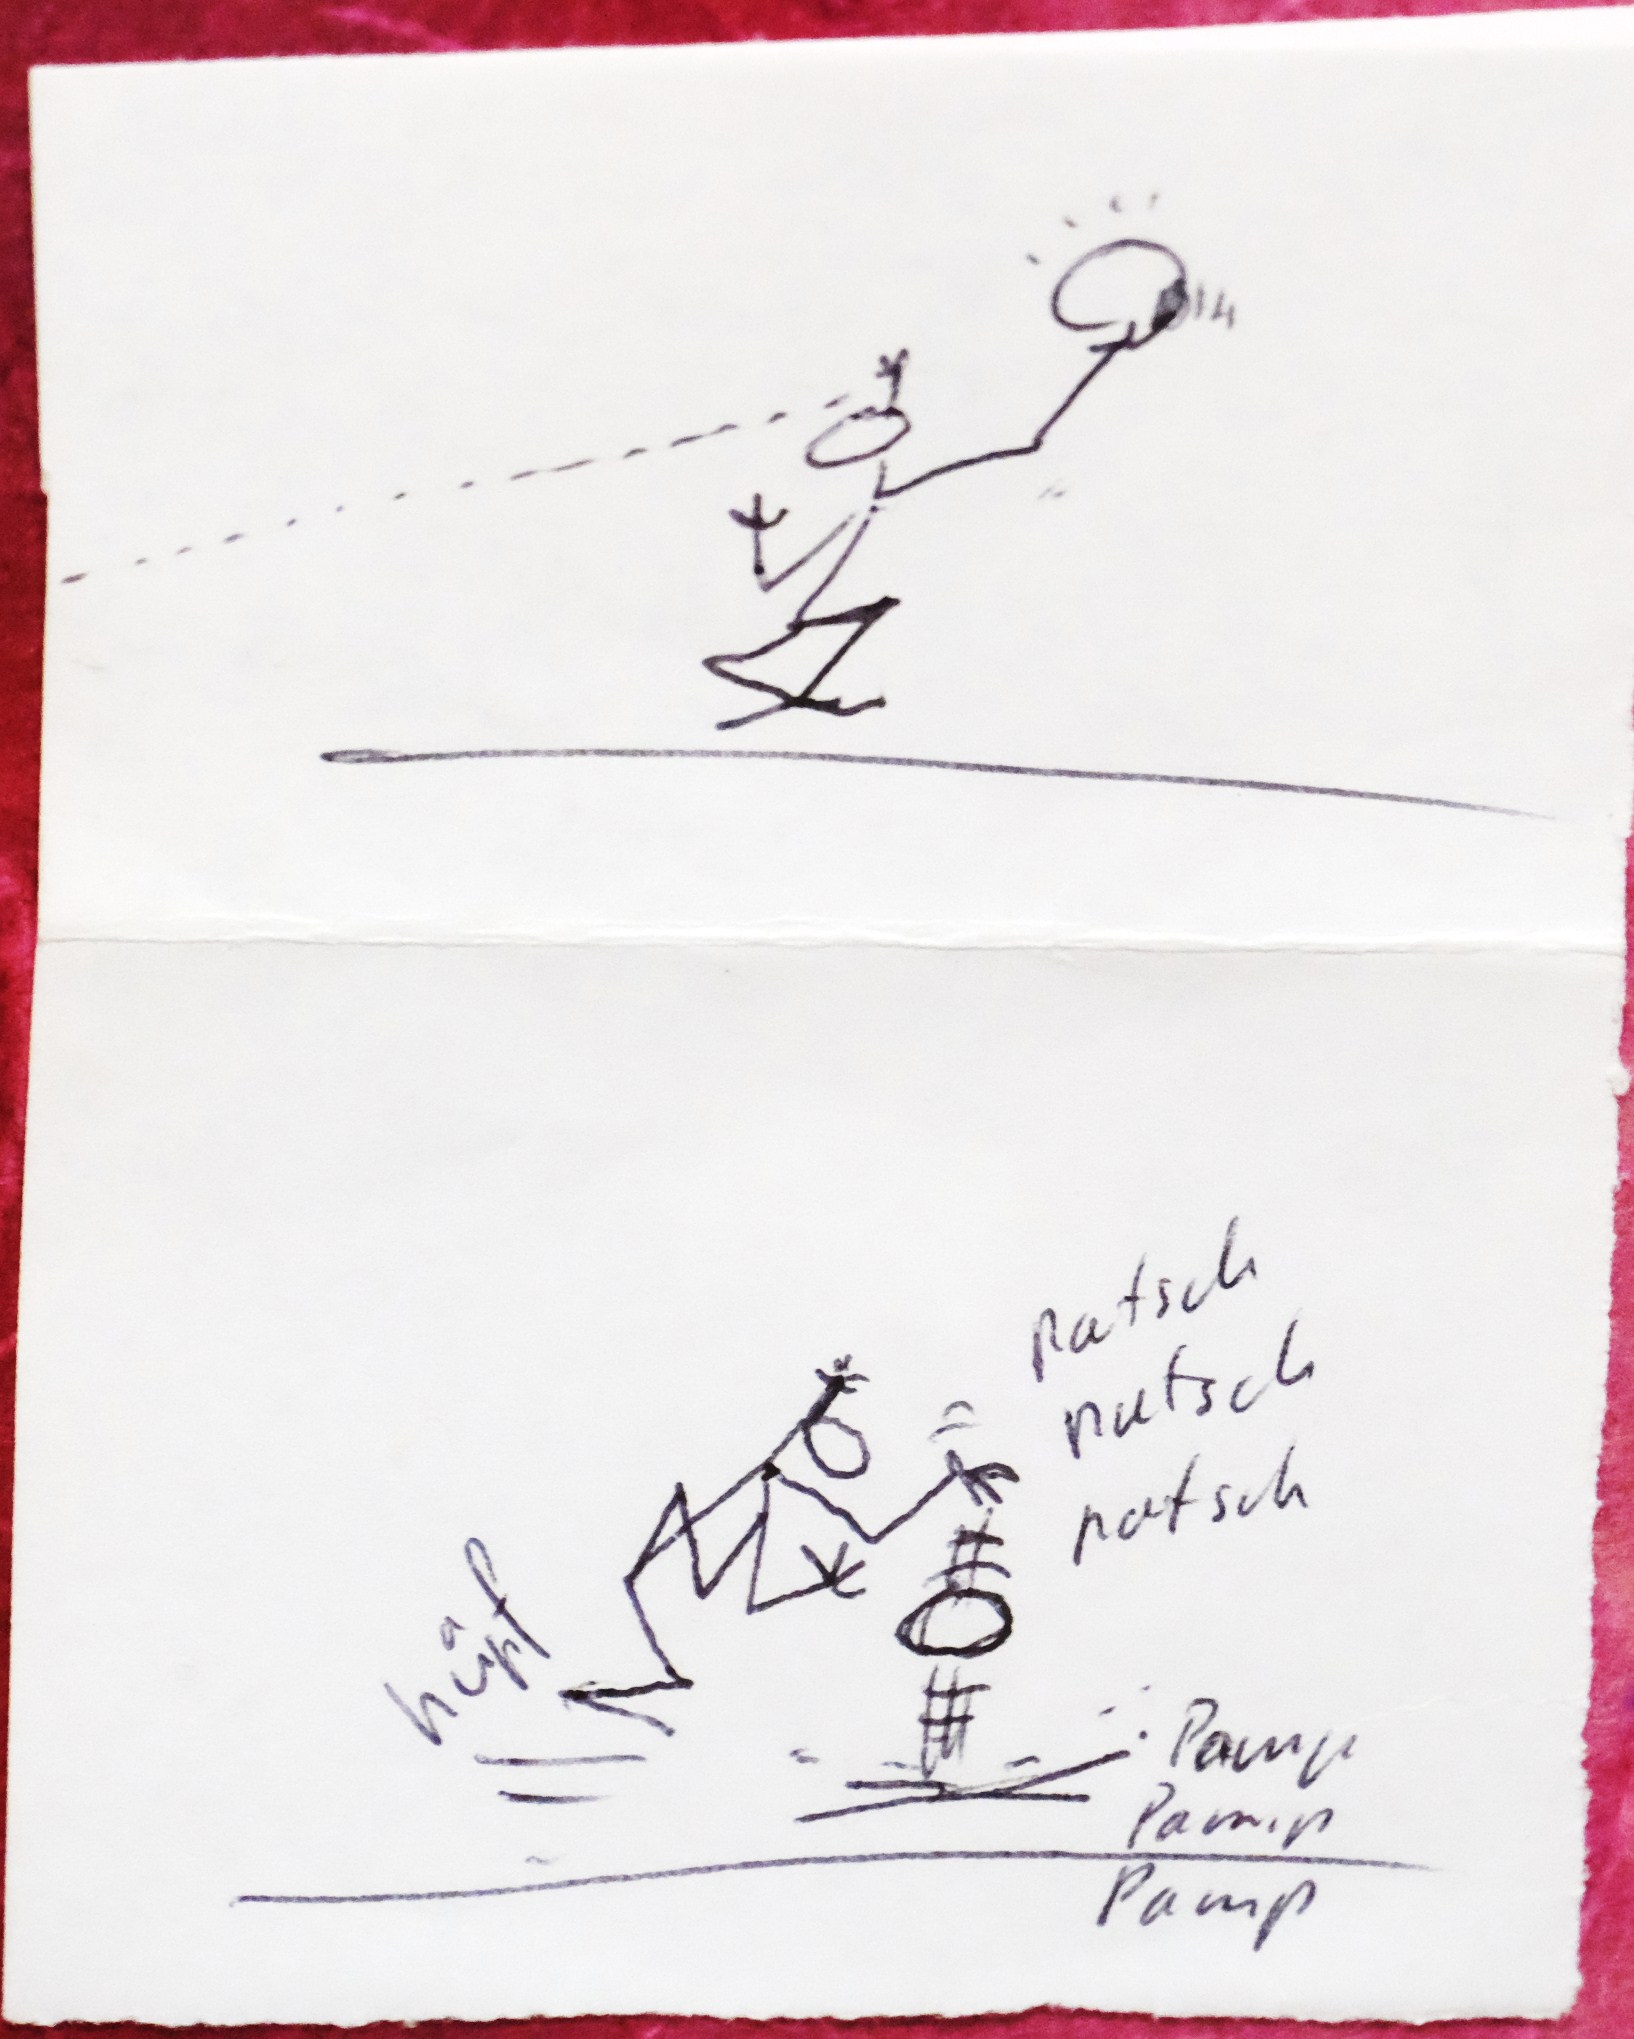 patsch
patsch
patsch
hüpf
Pamp
Pamp
Pamp